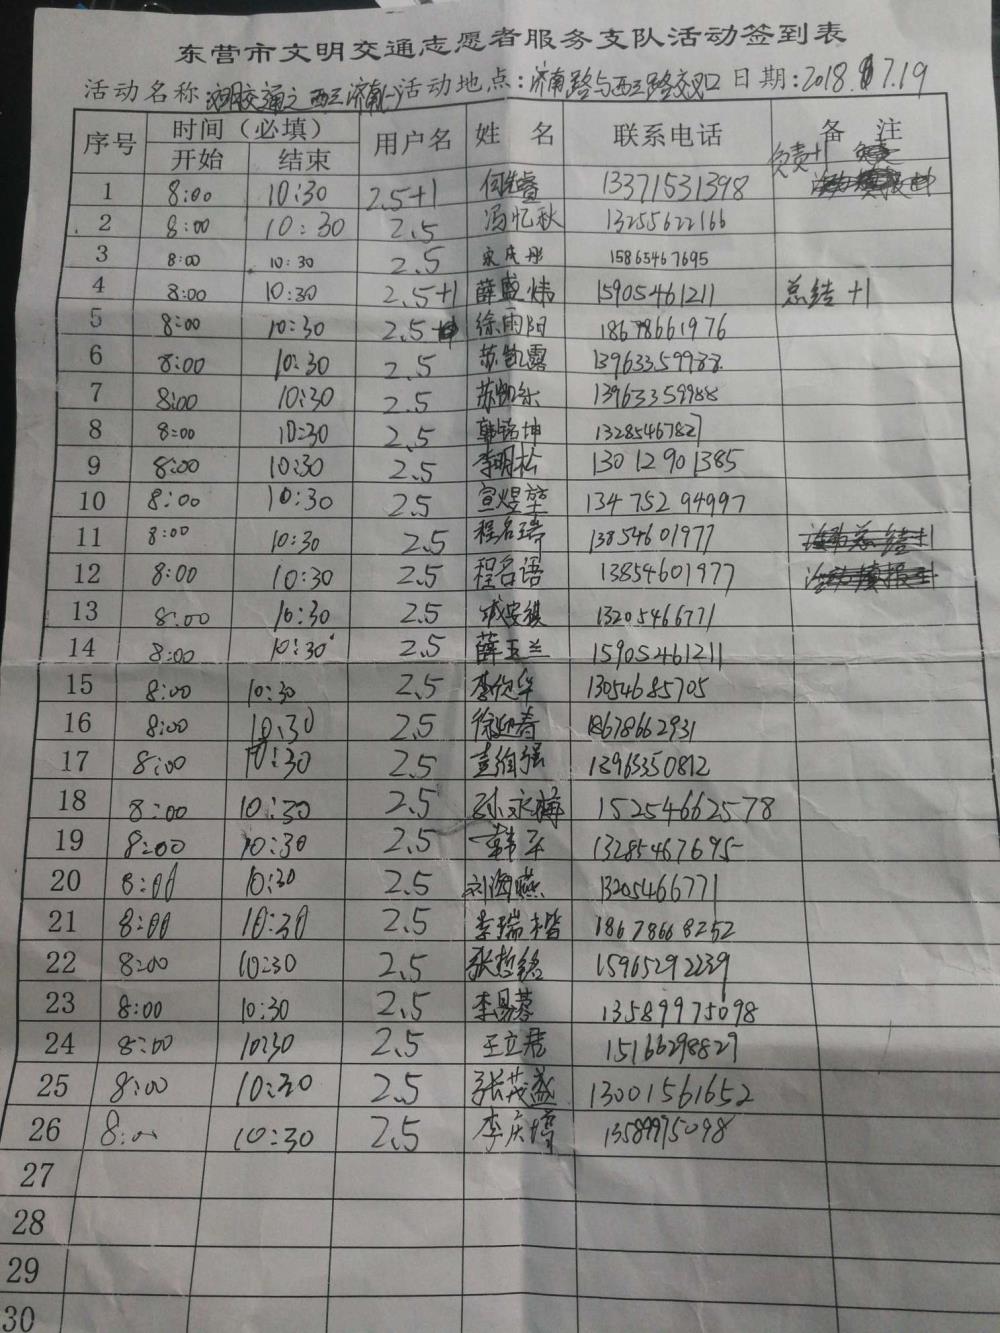 东营市文明交通志愿者服务支队活动签到表
活动名称:文明交通之西三济南 活动地点:济南路与西三路交叉口 日期:2018.7.19
序号 时间(必填) 用户名 姓 名 联系电话 备 注
开始 结束
负责+1
1 8:00 10:30 2.5+1 何 13371531398
2 8:00 10:30 2.5 冯忆秋 13255622166
3 8:00 10:30 2.5 宋庆彤 15865467695
4 8:00 10:30 2.5+1 薛盛炜 15905461211 总结+1
5 8:00 10:30 2.5 徐雨阳 18678661976
6 8:00 10:30 2.5 苏凯露 13963359988
7 8:00 10:30 2.5 苏凯乐 13963359988
8 8:00 10:30 2.5 韩铭坤 13285467827
9 8:00 10:30 2.5 李明松 13012901385
10 8:00 10:30 2.5 宣煜堃 13475294997
11 8:00 10:30 2.5 程名瑞 13854601977
12 8:00 10:30 2.5 程名语 13854601977
13 8:00 10:30 2.5 安祺 13205466771
14 8:00 10:30 2.5 薛玉兰 15905461211
15 8:00 10:30 2.5 李欣华 13054685705
16 8:00 10:30 2.5 徐迎春 18678662931
17 8:00 10:30 2.5 13963350812
18 8:00 10:30 2.5 孙永梅 15254662578
19 8:00 10:30 2.5 韩平 13285467695
20 8:00 10:30 2.5 刘海燕 13205466771
21 8:00 10:30 2.5 李瑞楷 18678668252
22 8:00 10:30 2.5 张哲铭 15965292239
23 8:00 10:30 2.5 李易蓉 13589975098
24 8:00 10:30 2.5 王立君 15166298829
25 8:00 10:30 2.5 张茂盛 13001561652
26 8:00 10:30 2.5 李庆增 13589975098
27
28
29
30